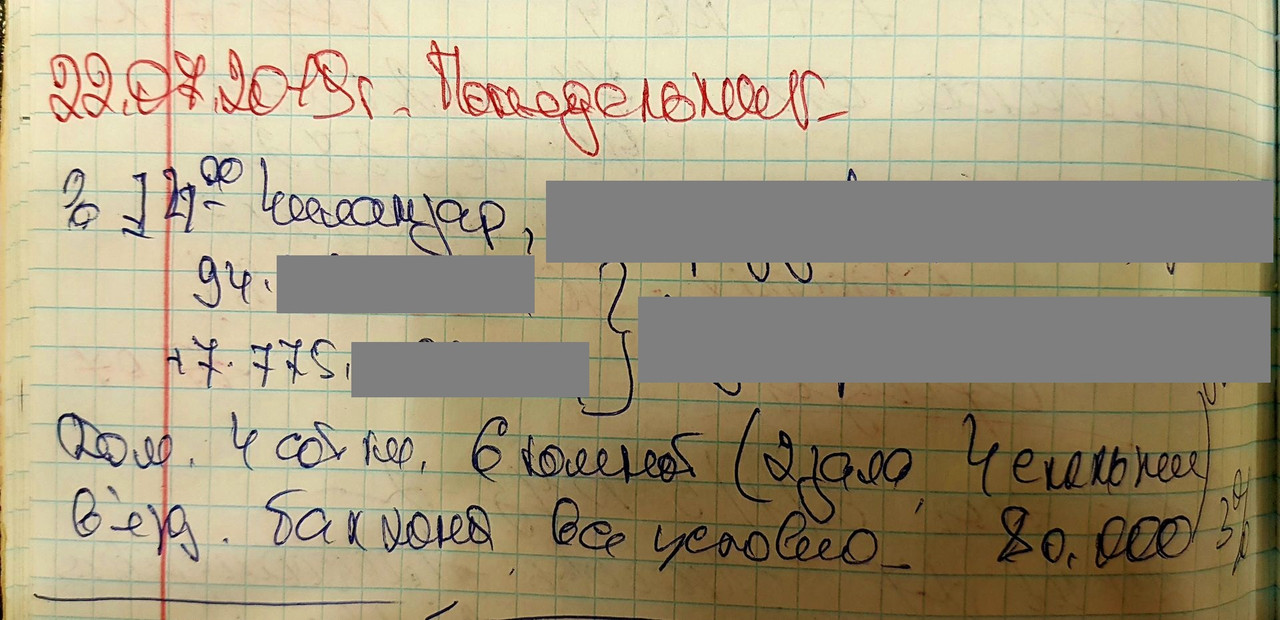 22.07.2019г. Понедельник
14-00 Чиланзар,
94.
+7.775.
Дом. 4 сотки. 6 комнат (2 зала, 4 спальни)
балкона все условие. 80.000 3%